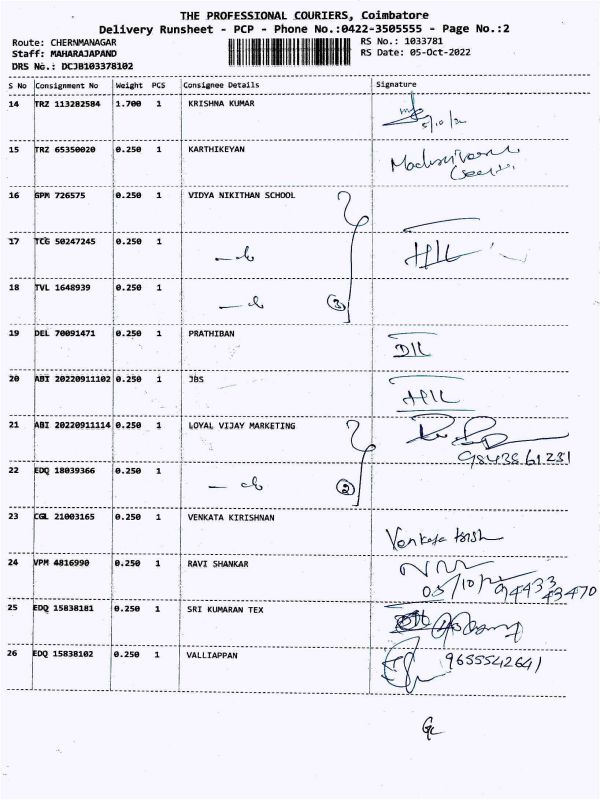 THE PROFESSIONAL COURIERS, Coimbatore
Delivery Runsheet - PCP - Phone No.:0422-3505555 - Page No.:2
Route: CHERNMANAGAR
Staff: MAHARAJAPAND
DRS No.: DCJB103378102
RS No.: 1033781
RS Date: 05-Oct-2022
S No Consignment No Weight PCS Consignee Details Signature
14 TRZ 113282584 1.700 1 KRISHNA KUMAR
15 TRZ 65350020 0.250 1 KARTHIKEYAN
16 GPM 726575 0.250 1 VIDYA NIKITHAN SCHOOL
17 TCG 50247245 0.250 1
18 TVL 1648939 0.250 1 3
19 DEL 70091471 0.250 1 PRATHIBAN
20 ABI 20220911102 0.250 1 JBS
21 ABI 20220911114 0.250 1 LOYAL VIJAY MARKETING
9843561231
22 EDQ 18039366 0.250 1 2
23 CGL 21003165 0.250 1 VENKATA KIRISHNAN
24 VPM 4816990 0.250 1 RAVI SHANKAR
94433
43470
25 EDQ 15838181 0.250 1 SRI KUMARAN TEX
26 EDQ 15838102 0.250 1 VALLIAPPAN 9655542641